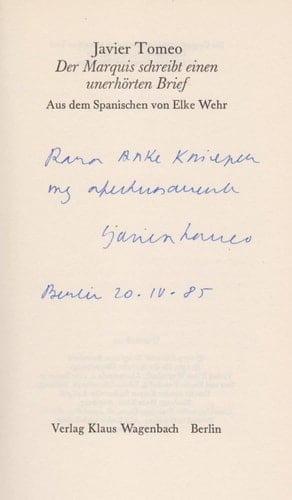 Javier Tomeo
Der Marquis schreibt einen
unerhörten Brief
Aus dem Spanischen von Elke Wehr
Para Anke Knieper
muy afectuosamente
Javier Tomeo
Berlin 20-IV-85
Verlag Klaus Wagenbach Berlin